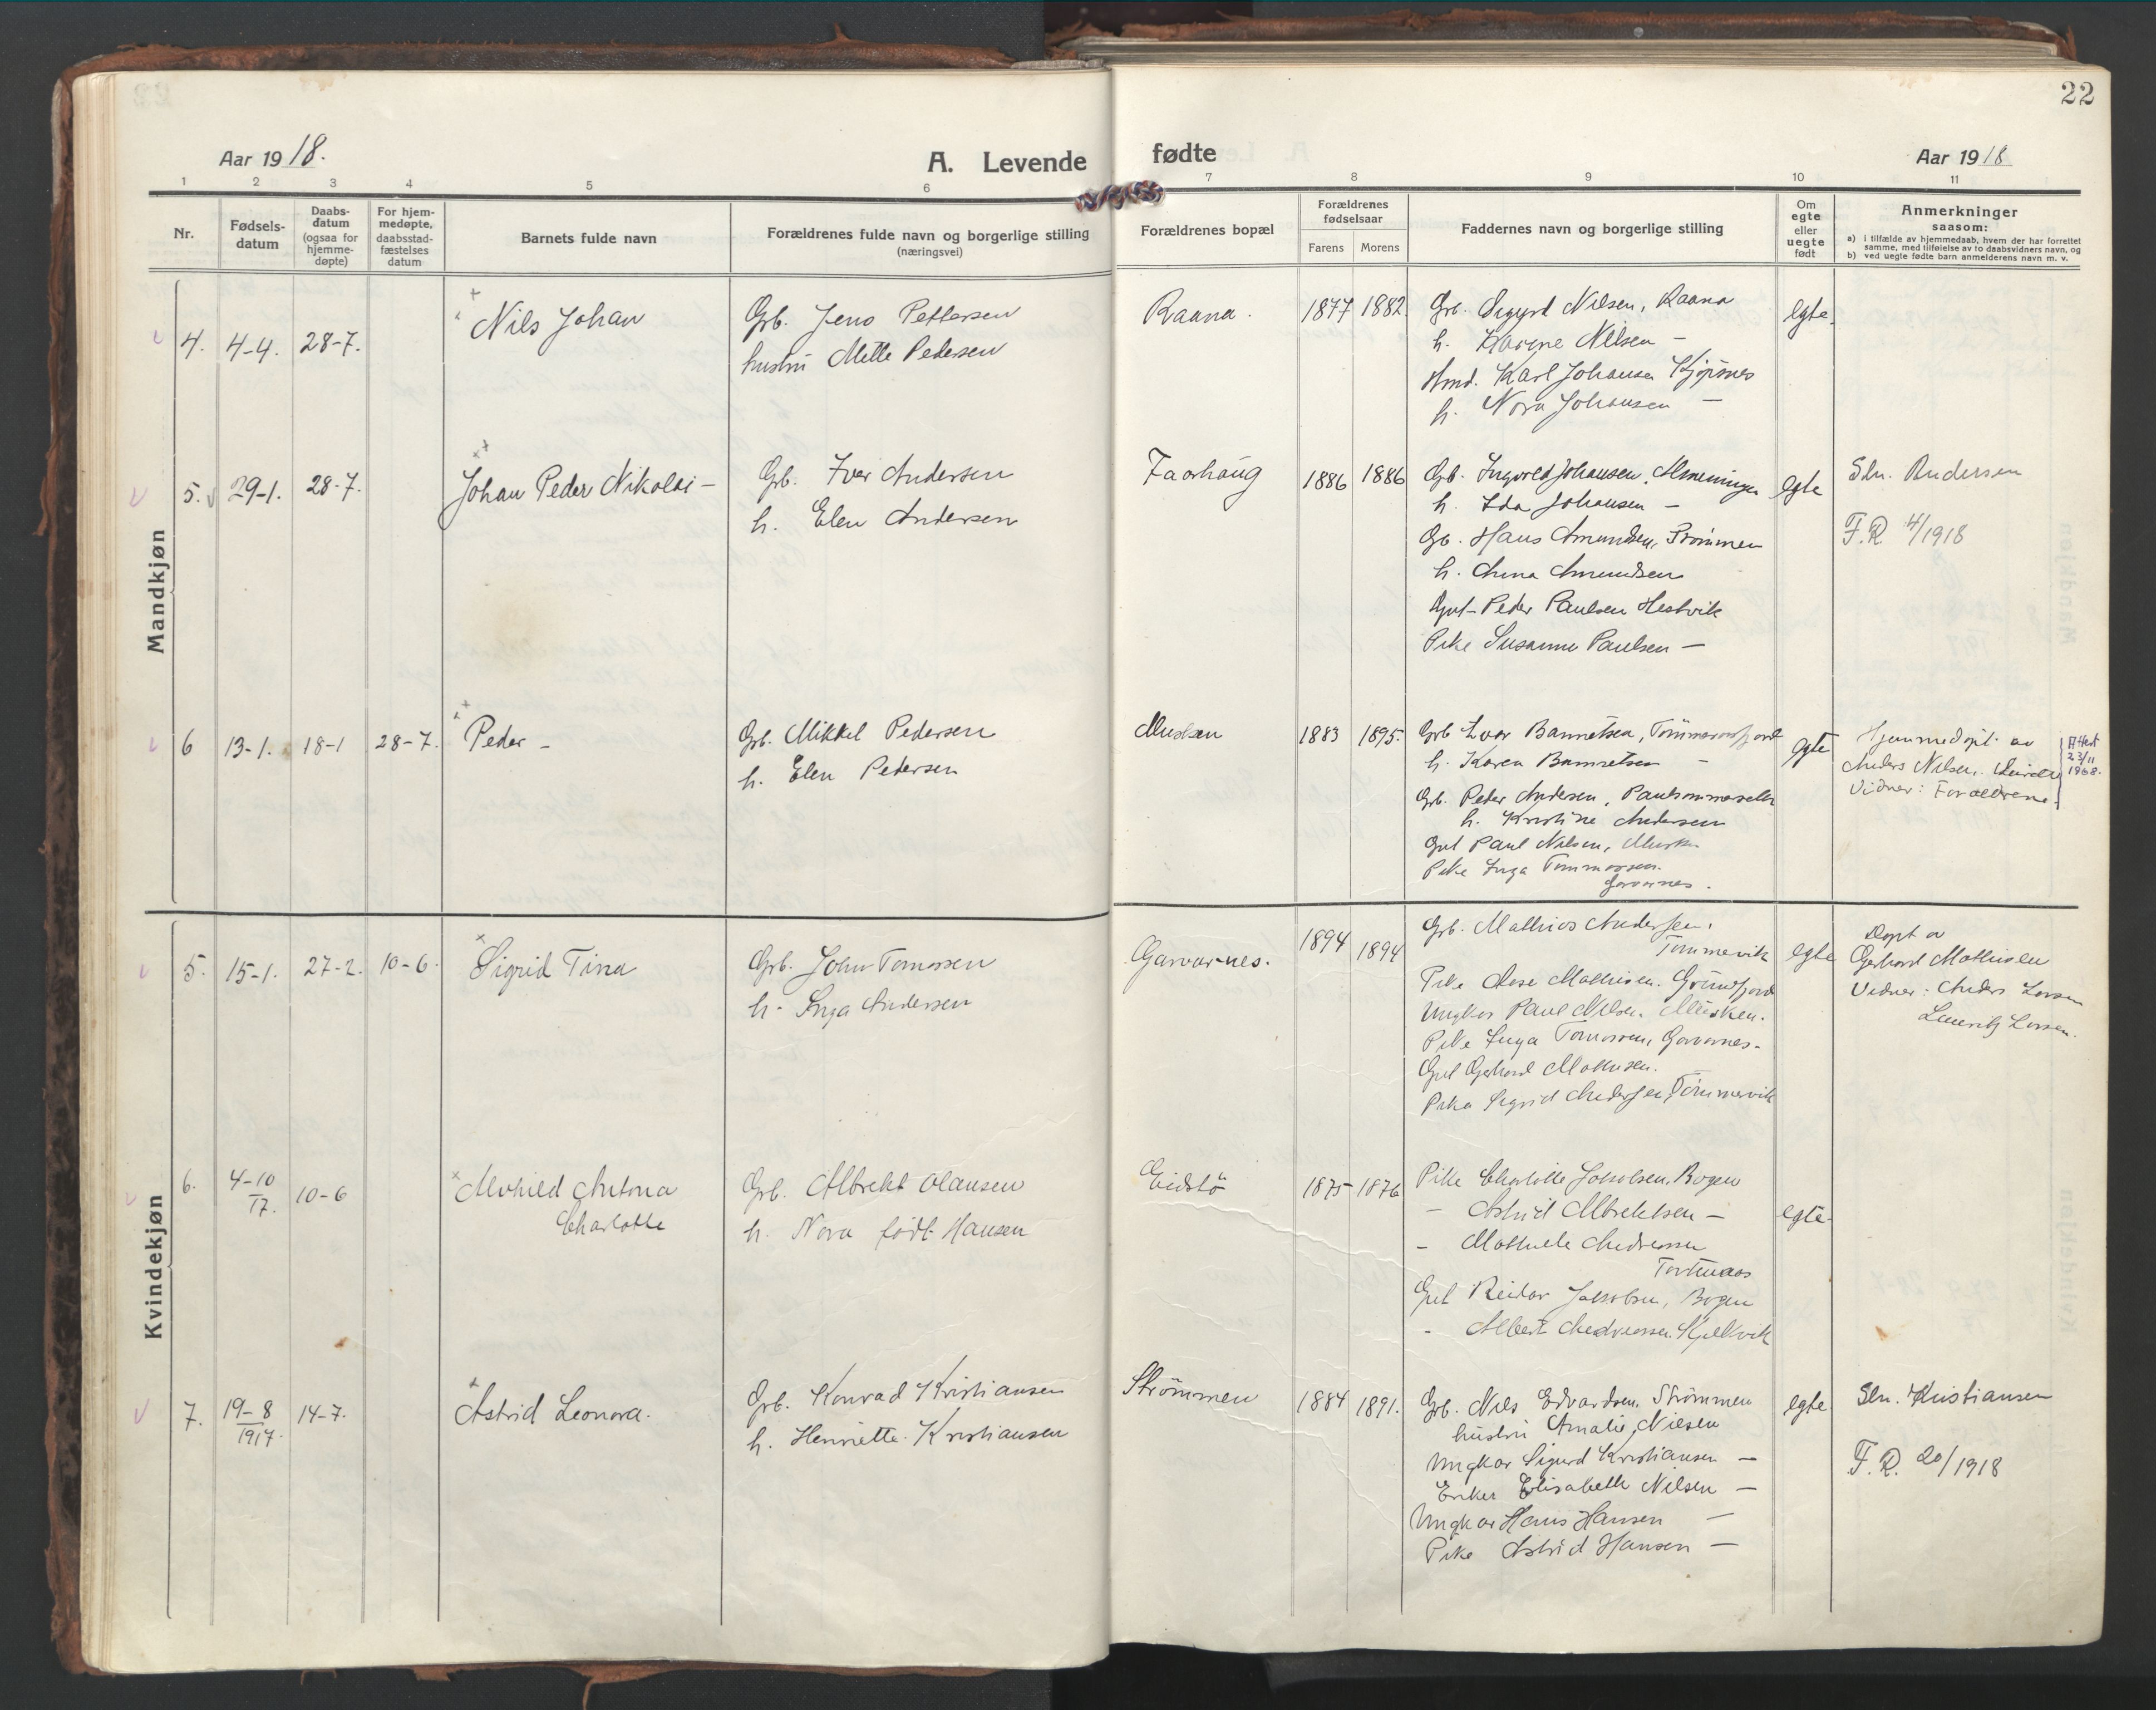 22
Aar 1918.
A. Levende fødte
Aar 1918
1 2 3 4 5 6 7 8 9 10 11
Nr.
Fødsels-
datum
Daabs-
datum
(ogsaa for
hjemme-
døpte)
For hjem-
medøpte,
daabsstad-
fæstelses
datum
Barnets fulde navn
Forældrenes fulde navn og borgerlige stilling
(næringsvei)
Forældrenes bopæl
Forældrenes
fødselsaar
Farens Morens
Faddernes navn og borgerlige stilling
Om
egte
eller
uegte
født
Anmerkninger
saasom:
a) i tilfælde av hjemmedaab, hvem der har forrettet
samme, med tilføielse av to daabsvidners navn, og
b) ved uegte fødte barn anmelderens navn m. v.
Mandkjøn
4. 4-4. 28-7.
Nils Johan
Grb. Jens Pettersen
hustru Mette Pedersen
Raana.
1877 1882.
Grb. Sigurd Nilsen, Raana
h. Karene Nilsen —
Hmd. Karl Johansen Kjøpsnes
h. Nora Johansen —
egte.
5. 29-1. 28-7.
Johan Peder Nikolai —
Grb. Iver Andersen
h. Elen Andersen
Faarhaug
1886 1886
Grb. Ingvald Johansen, Almenningen
h. Ida Johansen —
Grb. Hans Amundsen, Strømmen
h. Anna Amundsen
Gut Peder Paulsen Hestvik
Pike Susanne Paulsen —
egte
Sln. Andersen
F.R. 4/1918
6 13-1. 18-1 28-7.
Peder —
Grb. Mikkel Pedersen
h. Elen Pedersen
Musken
1883 1895.
Grb Ivar Bannetsen, Tømmeraasfjord
h. Karen Bannetsen —
Grb. Peder Andersen,
h. Kristine Andersen
Gut Paul Nilsen, Musken
Pike Inga Tommassen.
Garvarnes.
egte
Hjemmedøpt av
Anders Nilsen.
Vidner: Forældrene.
Attest
23/11
1968.
Kvindekjøn
5. 15-1. 27-2. 10-6.
Sigrid Tina
Grb. John Tomassen
h. Inga Andersen
Garvarnes.
1894 1894
Grb. Mathias Andersen,
Tømmervik
Pike Aase Mathisen. Grundfjord
Ungkar Paul Nilsen. Musken.
Pike Inga Tomassen, Garvarnes.
Gut Gerhard Mathisen.
Pike Sigrid Andersen, Tømmervik
egte
Døpt av
Gerhard Mathisen
Vidner: Anders Larsen
Lauritz Larsen.
6. 4-10
17. 10-6
Alvhild Antona
Charlotte
Grb. Albrekt Olausen
h. Nora født Hansen
Eidstø
1875 1876
Pike Charlotte Jakobsen, Bogen
— Astrid Albrektsen —
— Mathilde Andreassen
Gut Reidar Jakobsen, Bogen
— Albert Andreassen, Kjelkvik
egte
7. 19-8
1917. 14-7.
Astrid Leonora.
Grb. Konrad Kristiansen
h. Henriette Kristiansen
Strømmen
1884 1891.
Grb. Nils Edvardsen, Strømmen
hustru Amalie Nilsen
Ungkar Sigurd Kristiansen —
Enke Elisabeth Nilsen —
Ungkar Hans Hansen —
Pike Astrid Hansen —
egte
Sln. Kristiansen
F.R. 20/1918